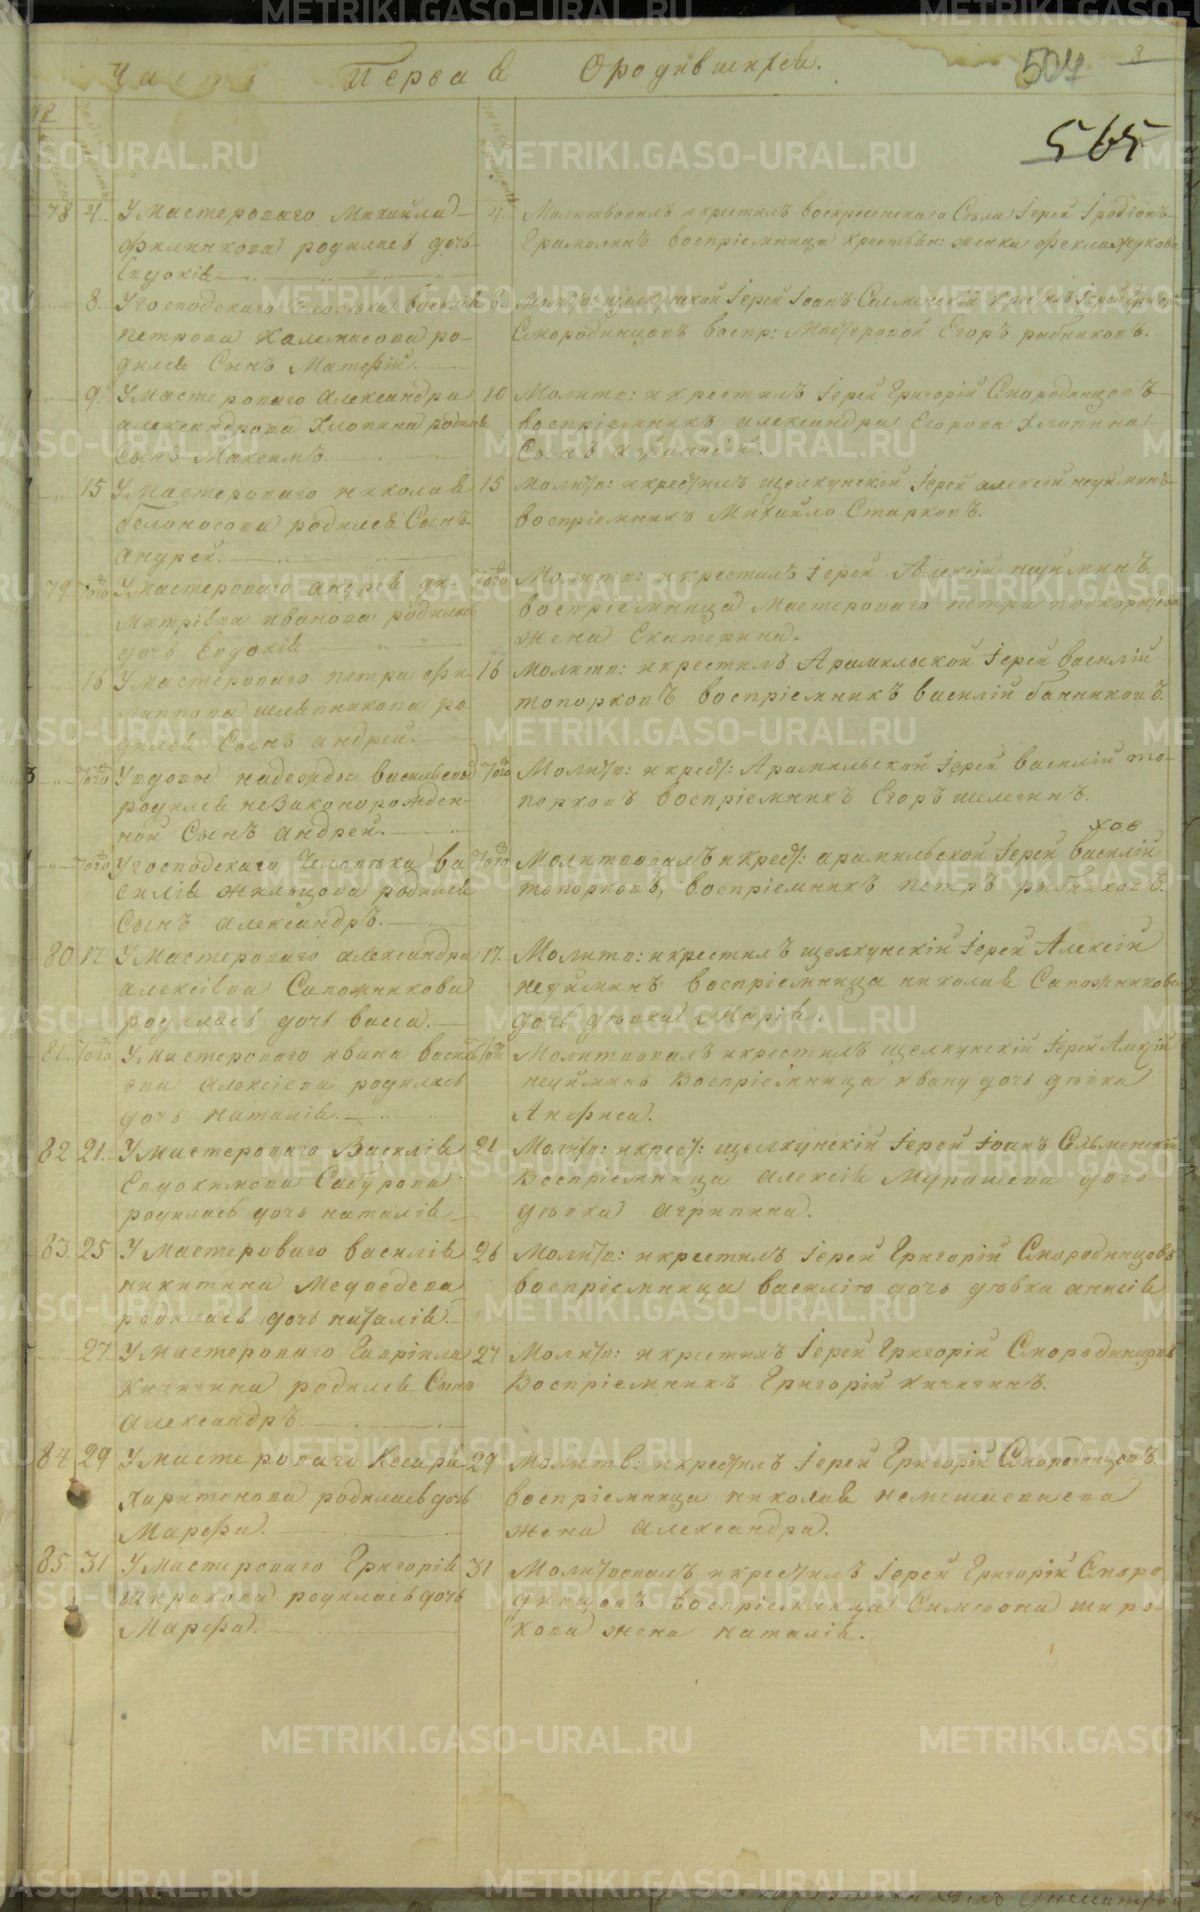 Часть Первая Ородившихся.
504
3
565
78 4. У Мастероваго Михайла
Филинкова родилась дочь
Евдокія
4. Молитвовалъ и крестилъ воскресенскаго Села Іерей Іродіонъ
воспріемница крестьян: женка Фекла Жукова
8. У господскаго человѣка Василія
Петрова родился
Сынъ Матфій.
8. Молитв: щелкунской Іерей Іоанъ Селменскій крестилъ Іерей
Смородинцовъ воспр: Мастеровой Егоръ рыбниковъ.
9. У мастероваго Александра
александрова Хлопина родился
Сынъ Максимъ
10 Молитв: и крестилъ Іерей Григорій Смородинцовъ
воспріемникъ александра Егорова Хлопина
Сынъ
15 У мастероваго николая
белоносова родился Сынъ
андрей.
15 Молитв: и крестилъ щелкунскій Іерей алексій неуйминъ
воспріемникъ Михайло Старковъ.
79 Того У мастероваго андрея дмитріева иванова родилась
дочь Евдокія
Того Молитв: и крестилъ Іерей Алексій неуйминъ
воспріемница Мастероваго петра
жена Екатерина.
16 У мастероваго петра филиппова шляпникова родился Сынъ андрей.
16 Молитв: и крестилъ Арамильской Іерей василій
топорковъ воспріемникъ василій банниковъ.
Того У вдовы надежды васильевой
родился незаконорожденной Сынъ андрей.
Того Молитв: и крест: Арамильской Іерей василій топорковъ воспріемникъ Егоръ шилегинъ.
Того У господскаго человѣка василія жильцова родился
Сынъ александръ.
Того Молитвовалъ и крест: арамильской Іерей василій
топорковъ, воспріемникъ петръ рыбниковъ.
80 17 У Мастероваго александра
алексіева Сапожникова
родилась дочь васса.
17. Молитв: и крестилъ щелкунскій Іерей Алексій
неуйминъ воспріемница николая Сапожникова
дочь дѣвка Марія.
81 Того У мастероваго ивана
алексіева родилась
дочь наталія.
Того Молитвовалъ и крестилъ щелкунскій Іерей Алексій
неуйминъ воспріемница ивану дочь дѣвка
Анфиса.
82 21. У мастероваго Василія
Евдокимова Сабурова
родилась дочь наталія
21 Молитв: и крест: щелкунскій Іерей Іоанъ Селменскій
воспріемница алексія Мурашева дочь
дѣвка агрипина.
83 25 У мастероваго василія
никитина Медведева
родилась дочь наталія.
26 Молитв: и крестилъ Іерей Григорій Смородинцовъ
воспріемница василію дочь дѣвка анисія
27. У мастероваго Гавріила
Кичигина родился Сынъ
александръ.
27 Молитв: и крестилъ Іерей Григорій Смородинцовъ
воспріемникъ Григорій кичигинъ.
84 29 У мастероваго Кесаря
Харитонова родилась дочь
Марфа.
29 Молитв: и крестилъ Іерей Григорій Смородинцовъ
воспріемница николая
жена александра.
85 31 У мастероваго Григорія
широкова родилась дочь
Марфа.
31 Молитвовалъ и крестилъ Іерей Григорій Смородинцовъ воспріемница Симеона широкова жена наталія.
METRIKI.GASO-URAL.RU